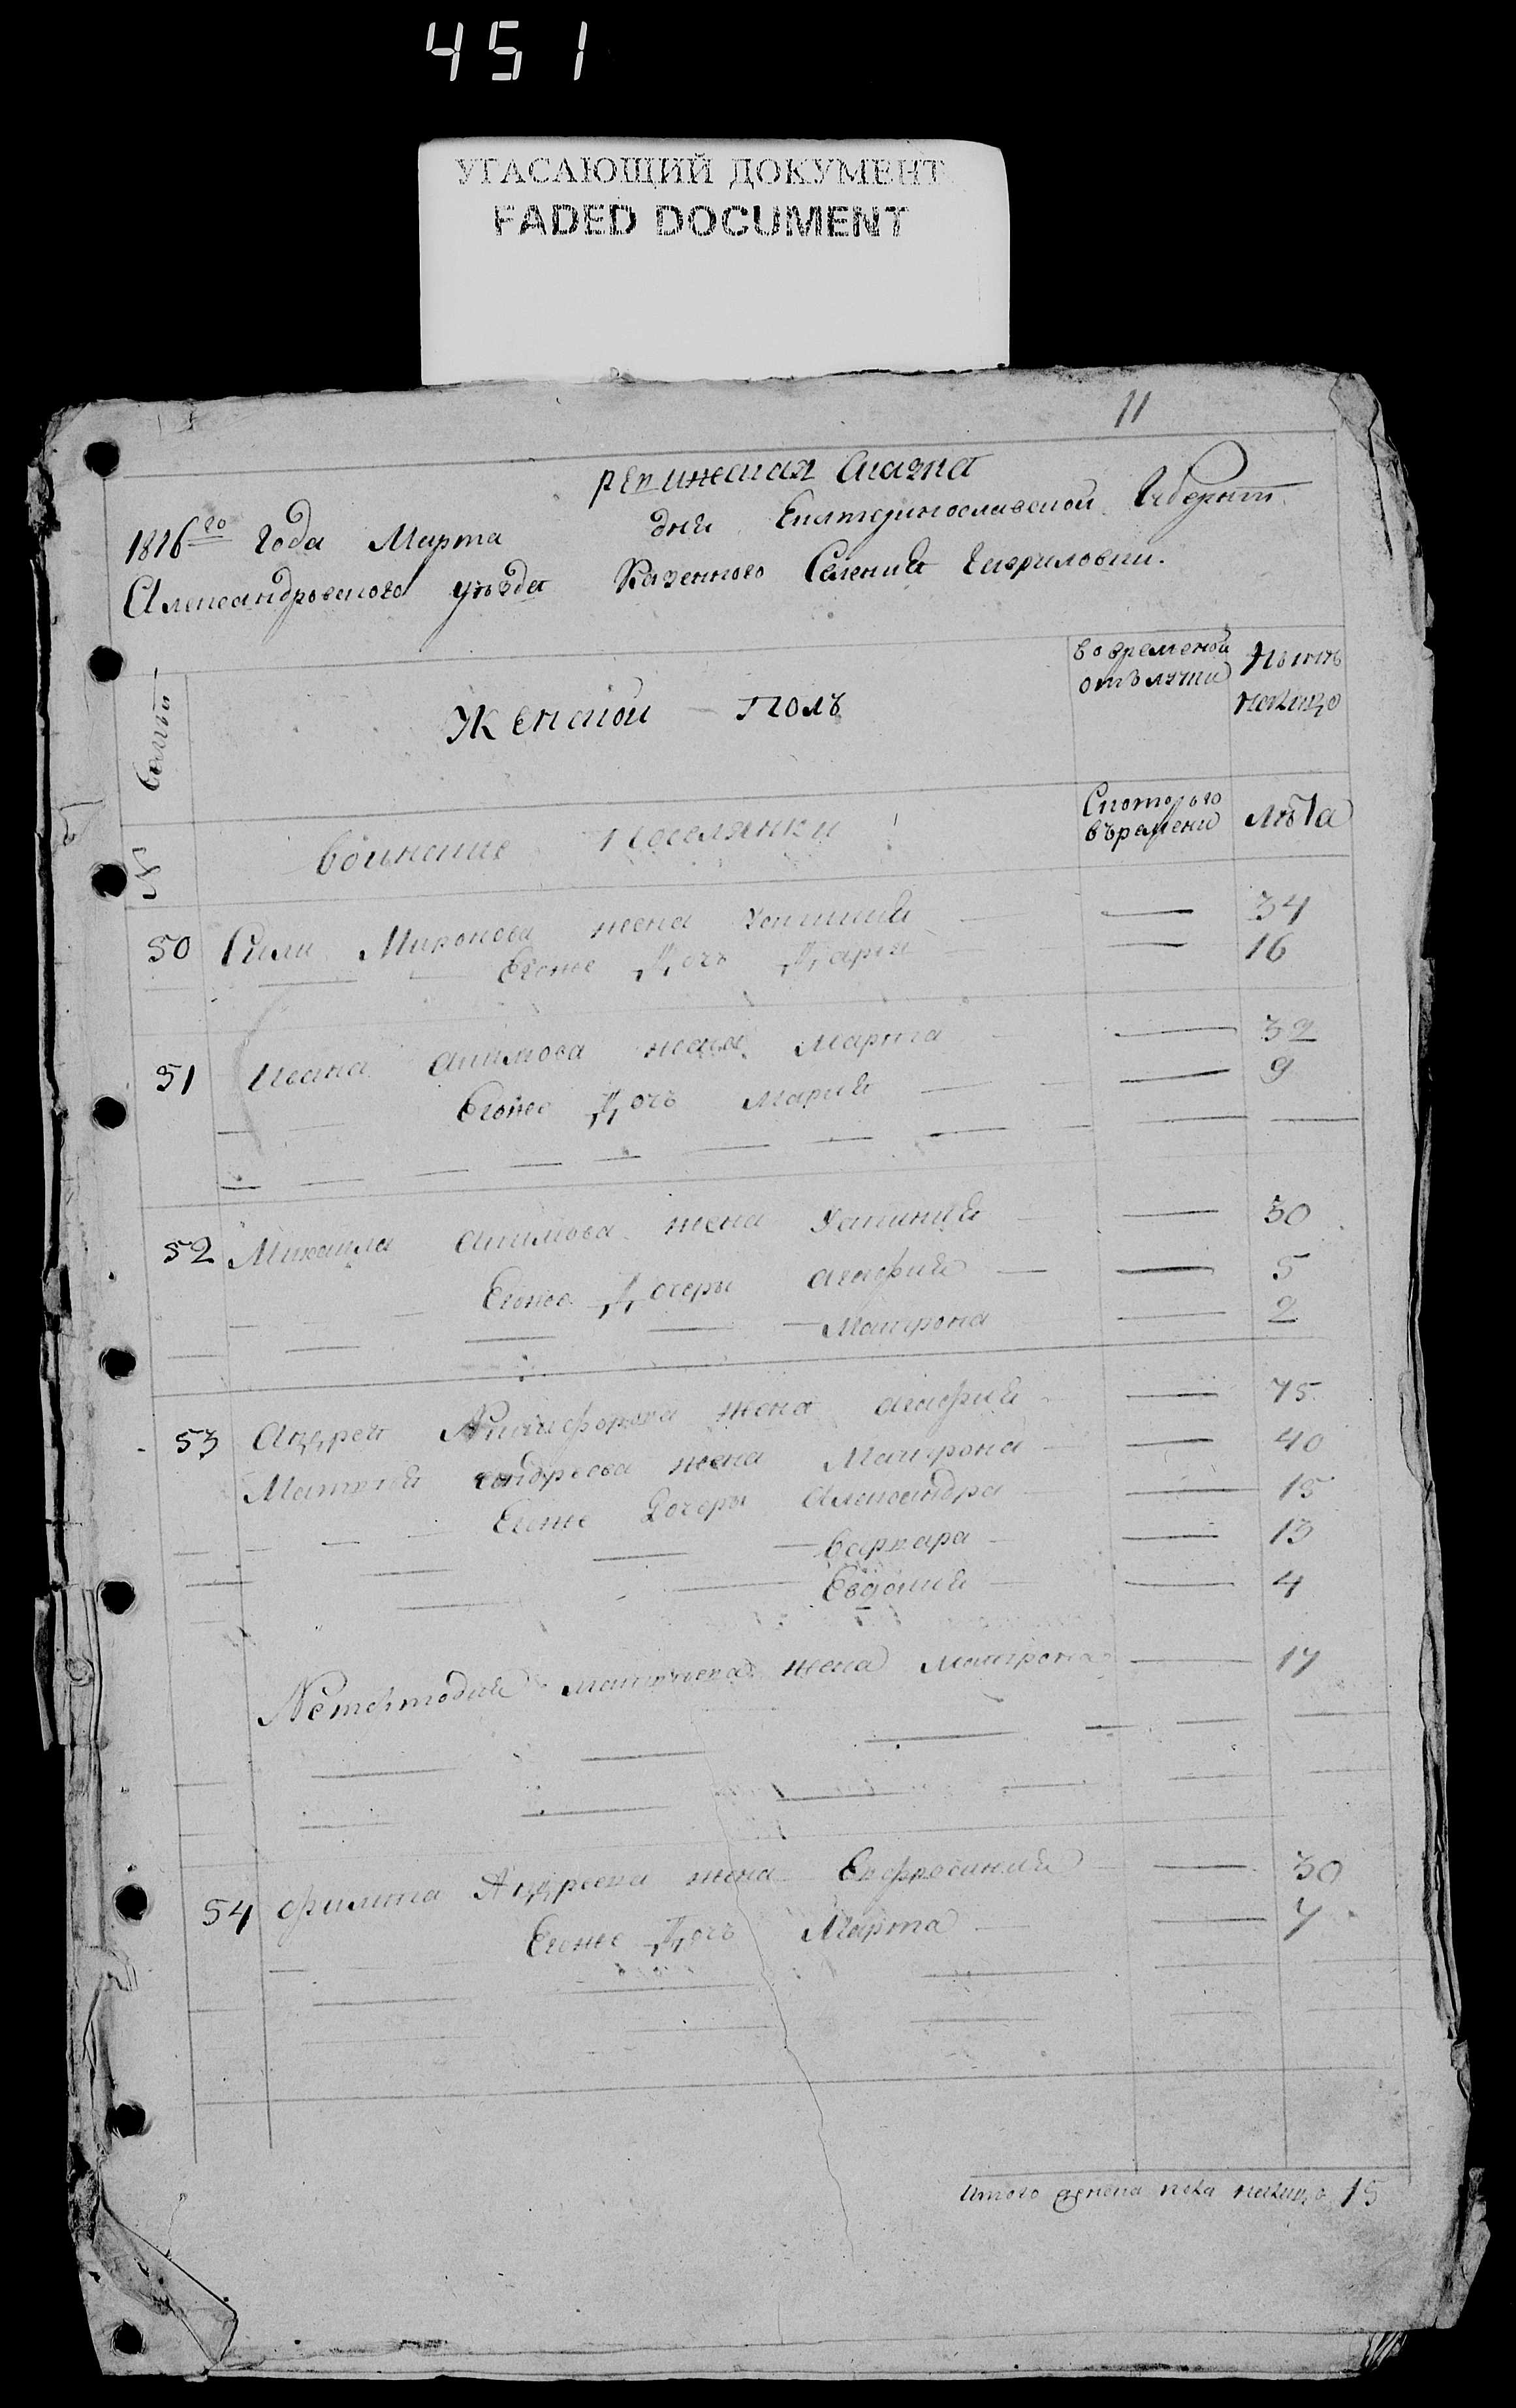 451
УГАСАЮЩИЙ ДОКУМЕНТ
FADED DOCUMENT
11
ревижская Сказка
1816го Года Марта дня Екатеринославской Губернт.
Александровского уезда Казенного Селения Гавриловки.
№ Семьи
Женской Полъ
во временой отълучки
Ныне налицо
Воинские Поселянки
Скоторого въремени
Лѣта
50 Миронова жена — 34
Егоже Дочь Дария — 16
51 Ивана Акимова жена Марфа — 32
Егоже Дочь Мария — 9
52 Михайла Акимова жена Устиния — 30
Егоже Дочери Агафия — 5
Матрона — 2
53 Андрея Никифорова жена Агафия — 75
Матвея Андреева жена Матрона — 40
Егоже Дочери Александра — 15
Варвара — 13
Евдокия — 4
матвеева жена Матрона — 17
54 Филипа Андреева жена Евфросиния — 30
Егоже Дочь Марта — 7
Итого женска пола налицо 15